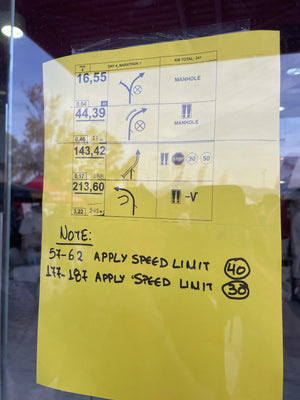 DAY 4_MARATHON 1 KM TOTAL: 347
16,55 MANHOLE
0,84
44,39 !! MANHOLE
0,46
143,42 !! STOP 30 50
0,17
213,60 !! -V
3,22
NOTE:
57-62 APPLY SPEED LIMIT 40
177-187 APPLY SPEED LIMIT 30